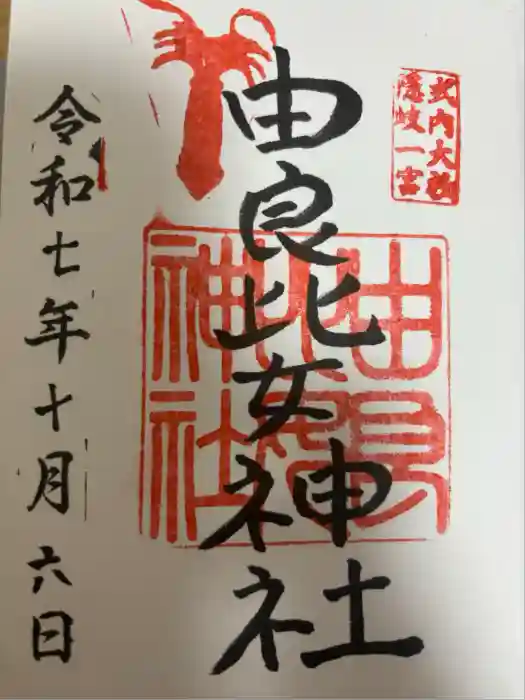 式内大社
隠岐一宮
由良比女神社
由良
比女
神社
令和七年十月六日